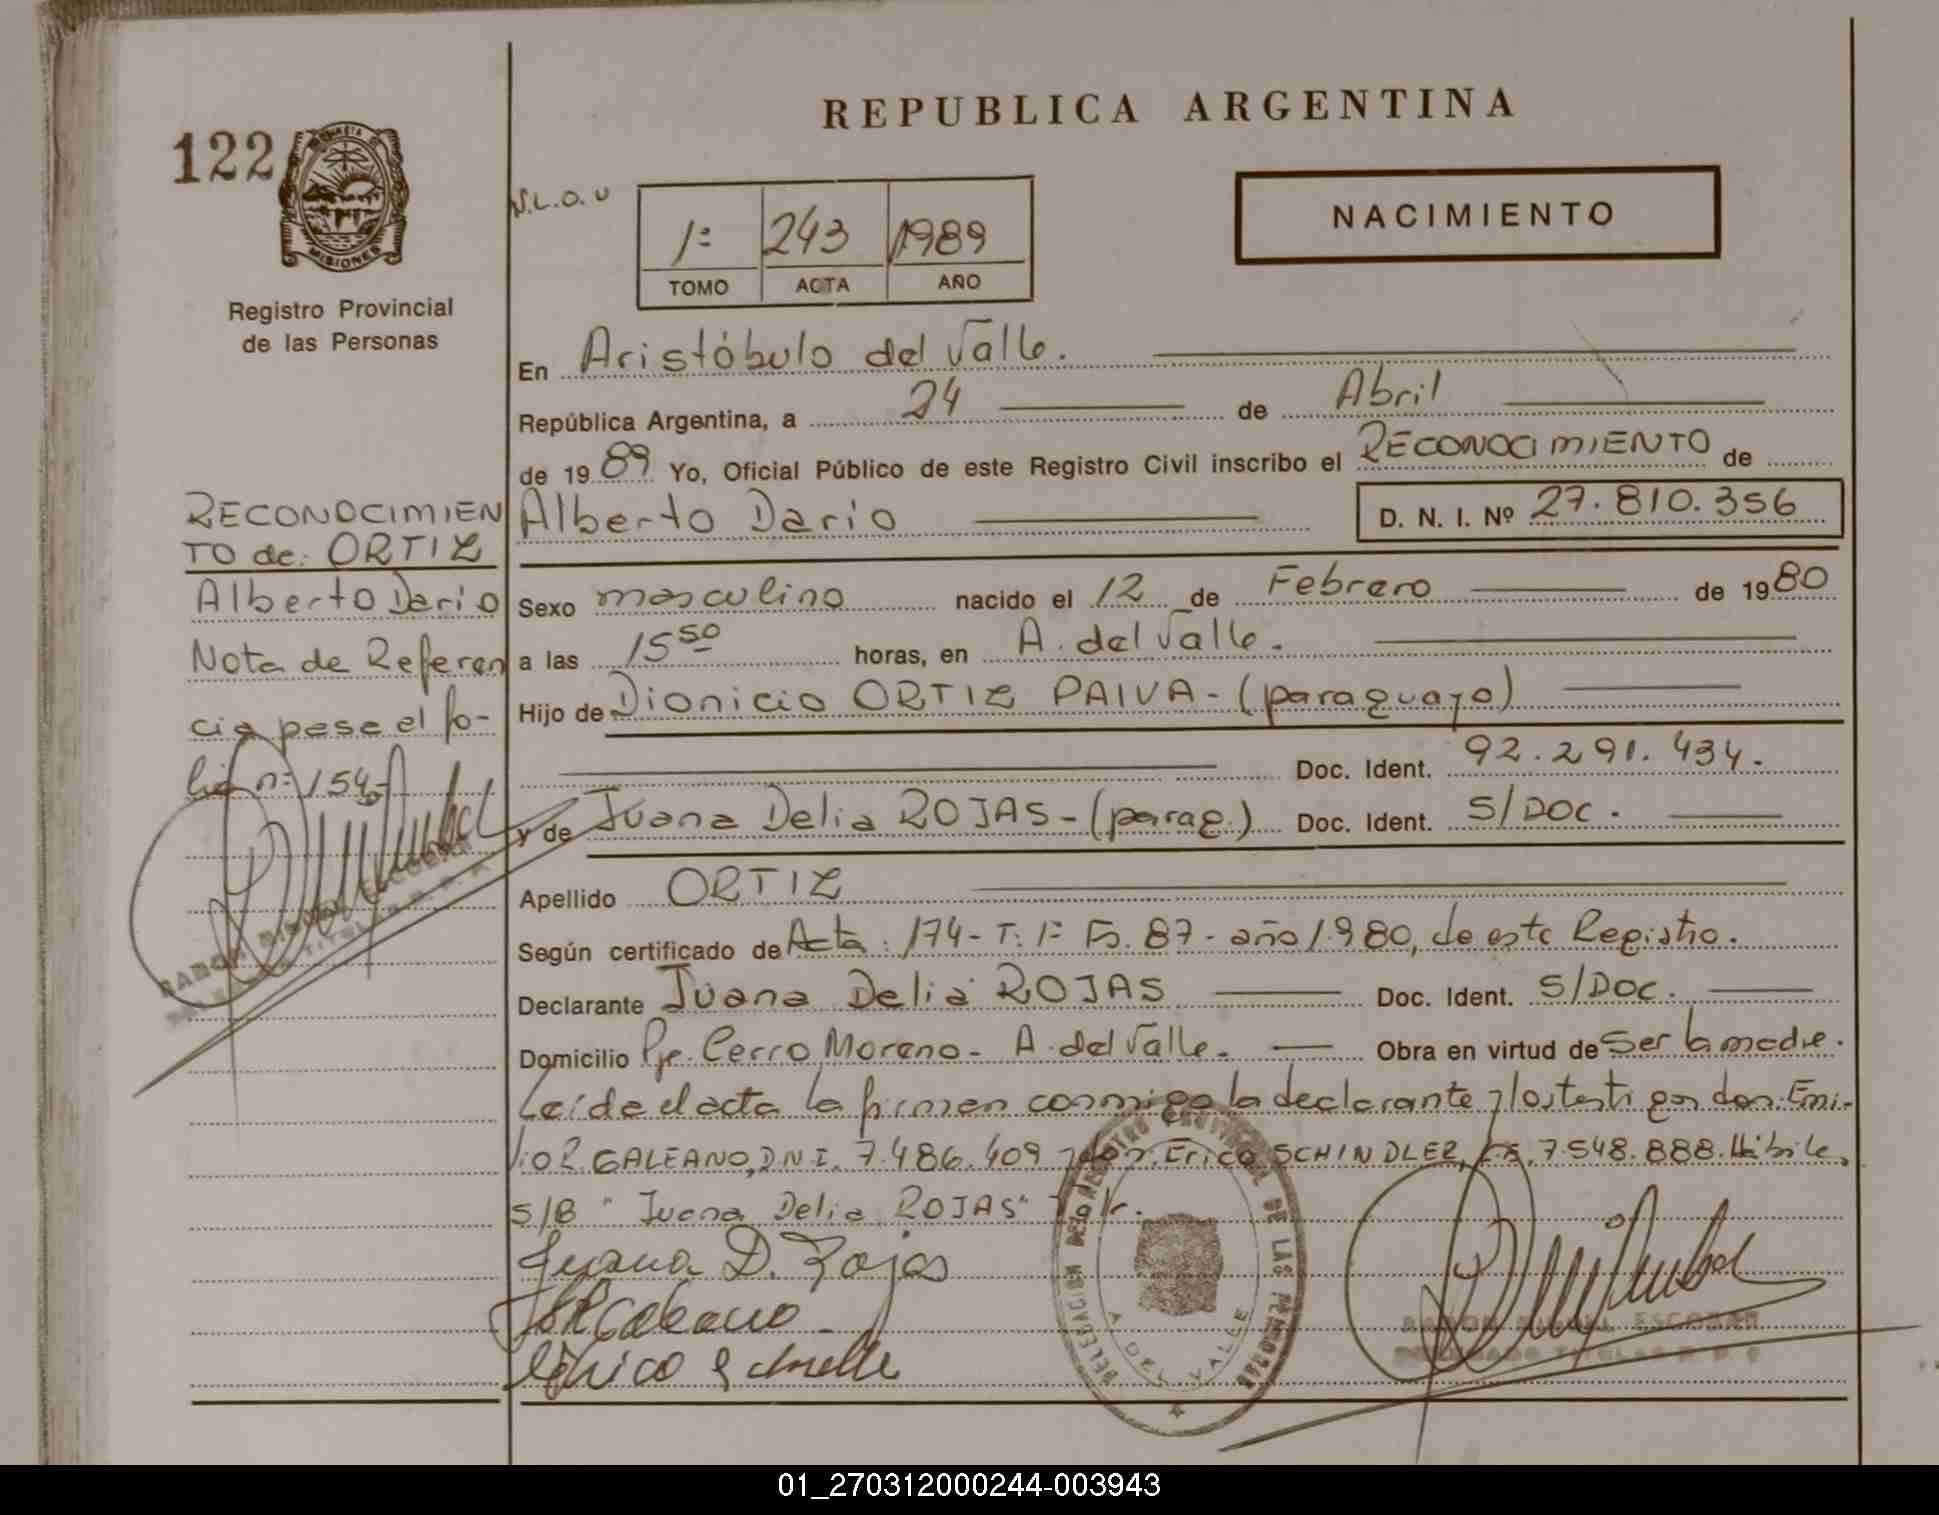 REPUBLICA ARGENTINA
122
MISIONES
Registro Provincial
de las Personas
N.L.O.U
1º 243 1989
TOMO ACTA AÑO
NACIMIENTO
En Aristóbulo del Valle.
República Argentina, a 24 de Abril
de 1989 Yo, Oficial Público de este Registro Civil inscribo el RECONOCIMIENTO de
Alberto Dario D. N. I. Nº 27.810.356
Sexo masculino nacido el 12 de Febrero de 1980
a las 15 50 horas, en A. del Valle.
Hijo de Dionicio ORTIZ PAIVA - (paraguayo)
Doc. Ident. 92.291.434.
y de Juana Delia ROJAS - (parag.) Doc. Ident. S/DOC.
Apellido ORTIZ
Según certificado de Acta: 174 - T: 1º Fo. 87 - año 1980, de este Registro.
Declarante Juana Delia ROJAS Doc. Ident. S/DOC.
Domicilio Pje. Cerro Moreno - A. del Valle. Obra en virtud de Ser la madre.
Leída el acta la firman conmigo la declarante y los testigos don Emi-
lio R. GALEANO, D.N.I. 7.486.409 y don Erico SCHINDLER, 7.548.888.
S/B "Juana Delia ROJAS"
Juana D. Rojas
RECONOCIMIEN
TO de: ORTIZ
Alberto Dario
Nota de Referen
cia pase el fo-
lio nº 154.
RAMON MIGUEL ESCOBAR
DELEGADO TITULAR R. P. P.
DELEGACION DEL REGISTRO PROVINCIAL DE LAS PERSONAS
A DEL VALLE
RAMON MIGUEL ESCOBAR
DELEGADO TITULAR R. P. P.
01_270312000244-003943